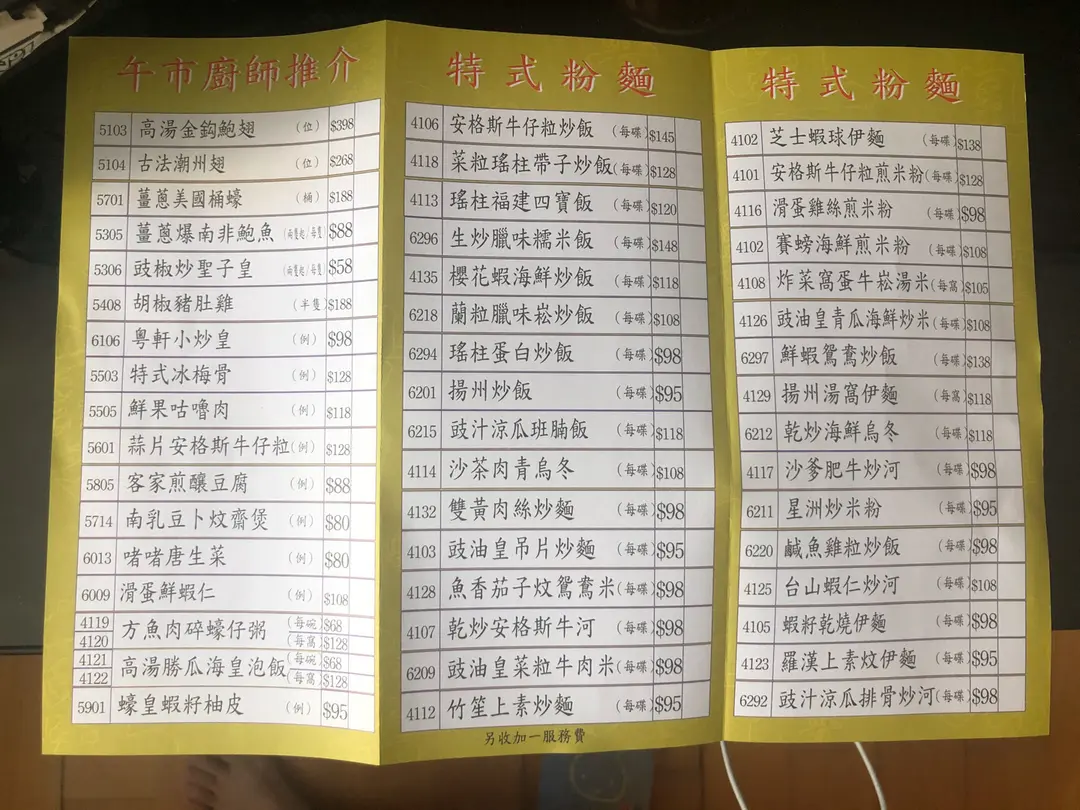 午市廚師推介
5103 高湯金鈎鮑翅 (位) $398
5104 古法潮州翅 (位) $268
5701 薑蔥美國桶蠔 (桶) $188
5305 薑蔥爆南非鮑魚 (兩隻起/每隻) $88
5306 豉椒炒聖子皇 (兩隻起/每隻) $58
5408 胡椒豬肚雞 (半隻) $188
6106 粵軒小炒皇 (例) $98
5503 特式冰梅骨 (例) $128
5505 鮮果咕嚕肉 (例) $118
5601 蒜片安格斯牛仔粒 (例) $128
5805 客家煎釀豆腐 (例) $88
5714 南乳豆卜炆齋煲 (例) $80
6013 啫啫唐生菜 (例) $80
6009 滑蛋鮮蝦仁 (例) $108
4119 方魚肉碎蠔仔粥 (每碗) $68
4120 (每窩) $128
4121 高湯勝瓜海皇泡飯 (每碗) $68
4122 (每窩) $128
5901 蠔皇蝦籽柚皮 (例) $95
特式粉麵
4106 安格斯牛仔粒炒飯 (每碟) $145
4118 菜粒瑤柱帶子炒飯 (每碟) $128
4113 瑤柱福建四寶飯 (每碟) $120
6296 生炒臘味糯米飯 (每碟) $148
4135 櫻花蝦海鮮炒飯 (每碟) $118
6218 蘭粒臘味崧炒飯 (每碟) $108
6294 瑤柱蛋白炒飯 (每碟) $98
6201 揚州炒飯 (每碟) $95
6215 豉汁涼瓜班腩飯 (每碟) $118
4114 沙茶肉青烏冬 (每碟) $108
4132 雙黃肉絲炒麵 (每碟) $98
4103 豉油皇吊片炒麵 (每碟) $95
4128 魚香茄子炆鴛鴦米 (每碟) $98
4107 乾炒安格斯牛河 (每碟) $98
6209 豉油皇菜粒牛肉米 (每碟) $98
4112 竹笙上素炒麵 (每碟) $95
另收加一服務費
特式粉麵
4102 芝士蝦球伊麵 (每碟) $138
4101 安格斯牛仔粒煎米粉 (每碟) $128
4116 滑蛋雞絲煎米粉 (每碟) $98
4102 賽螃海鮮煎米粉 (每碟) $108
4108 炸菜窩蛋牛崧湯米 (每窩) $105
4126 豉油皇青瓜海鮮炒米 (每碟) $108
6297 鮮蝦鴛鴦炒飯 (每碟) $138
4129 揚州湯窩伊麵 (每窩) $118
6212 乾炒海鮮烏冬 (每碟) $118
4117 沙爹肥牛炒河 (每碟) $98
6211 星洲炒米粉 (每碟) $95
6220 鹹魚雞粒炒飯 (每碟) $98
4125 台山蝦仁炒河 (每碟) $108
4105 蝦籽乾燒伊麵 (每碟) $98
4123 羅漢上素炆伊麵 (每碟) $95
6292 豉汁涼瓜排骨炒河 (每碟) $98